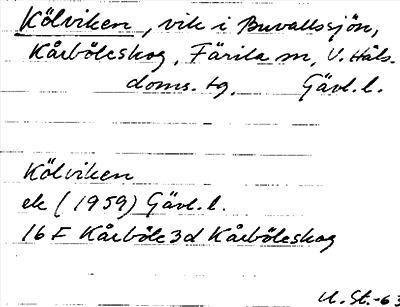 Kölviken, vik i Buvallssjön,
Kårböleskog, Färila sn, V. Häls.
doms. tg, Gävl. l.
Kölviken
ek (1959) Gävl. l.
16 F Kårböle 3d Kårböleskog
U. St. -63